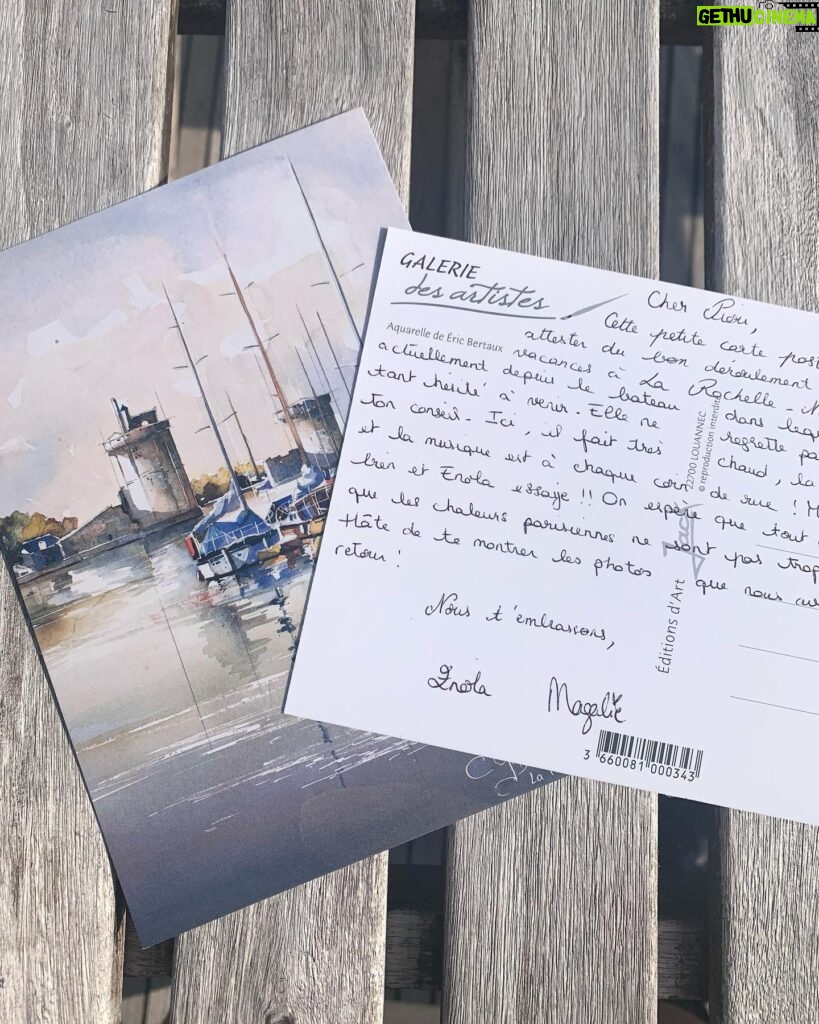 GETHU CINEMA
GALERIE
des artistes
Aquarelle de Éric Bertaux
Cher Piou,
Cette petite carte post
attester du bon déroulement
vacances à La Rochelle. N
actuellement depuis le bateau dans laqu
tant hésité à venir. Elle ne regrette pa
ton conseil. Ici, il fait très chaud, la
et la musique est à chaque coin de rue ! M
bien et Enola essaye !! On espère que tout
que les chaleurs parisiennes ne sont pas trop
Hâte de te montrer les photos que nous au
retour !
Nous t'embrassons,
Enola Magalie
Éditions d'Art Jack
22700 LOUANNEC
© reproduction interdite
3 660081 000343